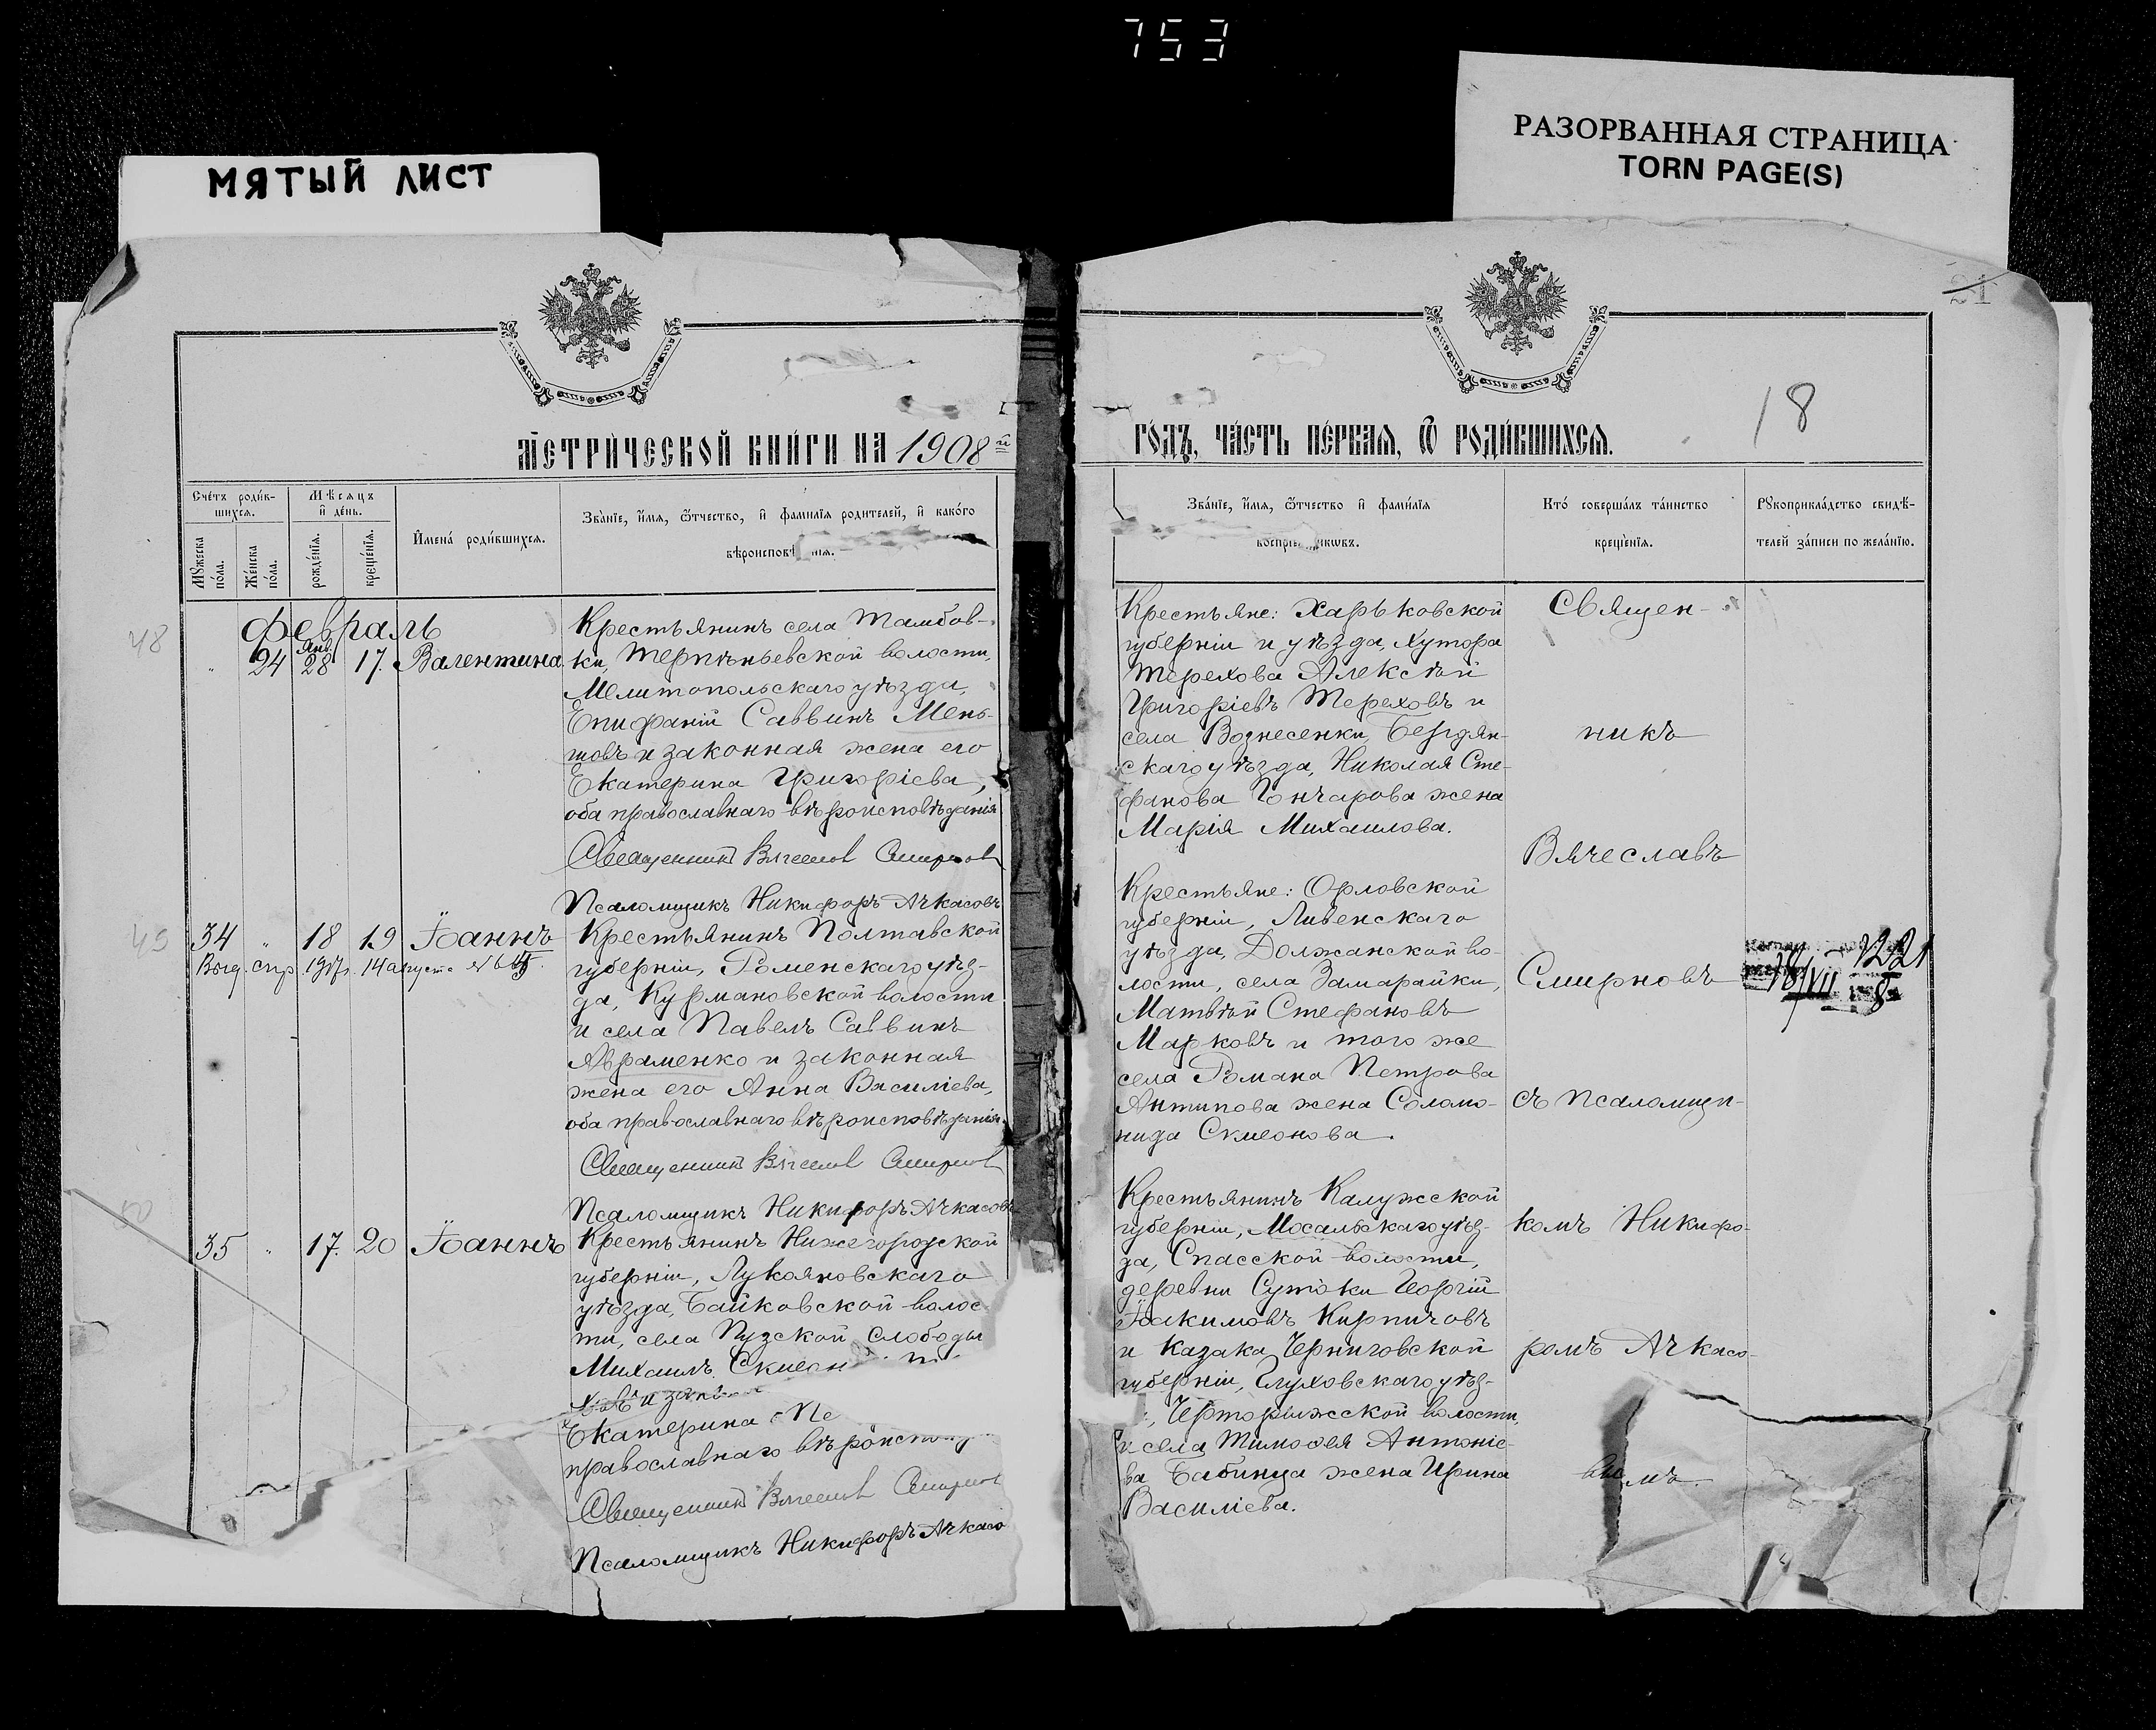 753
РАЗОРВАННАЯ СТРАНИЦА
TORN PAGE(S)
МЯТЫЙ ЛИСТ
21
18
МЕТРИ́ЧЕСКОЙ КНИ́ГИ НА 1908 й
ГО́ДЪ, ЧА́СТЬ ПЕ́РВАѦ, Ѿ РОДИ́ВШИХСѦ.
Сче́тъ роди́в-
шихсѧ.
Му́жеска по́ла.
Же́нска по́ла.
Мѣ́сѧцъ
и҆ де́нь.
рожде́нїѧ.
креще́нїѧ.
И҆мена́ роди́вшихсѧ.
Зва́нїе, и҆́мѧ, ѻ҆́тчество, и҆ фами́лїѧ роди́телей, и҆ како́гѡ
Зва́нїе, и҆́мѧ, ѻ҆́тчество и҆ фами́лїѧ
Кто̀ соверша́лъ та́инство
креще́нїѧ.
Рꙋкоприкла́дство свидѣ́-
телей за́писи по жела́нїю.
48
Февраль
24 Янв. 28 17. Валентина
Крестьянинъ села Тамбов-
ки, Терпѣньевской волости,
Мелитопольскаго уѣзда,
Епифаній Саввинъ Мень-
шовъ и законная жена его
Екатерина Григоріева,
оба православнаго вѣроисповѣданія
Священникъ Вячеславъ Смирновъ
Псаломщикъ Никифоръ Ачкасовъ
Крестьяне: Харьковской
губерніи и уѣзда, хутора
Терехова Алексѣй
Григоріевъ Тереховъ и
села Вознесенки, Бердян-
скаго уѣзда, Николая Сте-
фанова Гончарова жена
Марія Михаилова.
49
34 " 18 19 Іоаннъ
14 августа
Крестьянинъ Полтавской
губерніи, Роменскаго уѣз-
да, Курмановской волости
и села Павелъ Саввинъ
Авраменко и законная
жена его Анна Василіева,
оба православнаго вѣроисповѣданія.
Священникъ Вячеславъ Смирновъ
Псаломщикъ Никифоръ Ачкасовъ
Крестьяне: Орловской
губерніи, Ливенскаго
уѣзда, Должанской во-
лости, села Замарайки,
Матвѣй Стефановъ
Марковъ и того же
села Романа Петрова
Антипова жена Соломо-
нида Симеонова.
1221
50
35 " 17. 20 Іоаннъ
Крестьянинъ Нижегородской
губерніи, Лукояновскаго
уѣзда, Байковской волос-
ти, села Пузской Слободы
Михаилъ Симеон
Екатерина Пе
православнаго вѣроиспов
Священникъ Вячеславъ Смирнов
Псаломщикъ Никифоръ Ачкасо
Крестьянинъ Калужской
губерніи, Мосальскаго уѣз-
да, Спасской волости,
деревни Сутоки Георгій
Іоакимовъ Кирпичовъ
и казака Черниговской
губерніи, Глуховскаго уѣз-
, Черторыжской волости,
и села Тимоѳея Антоніе-
ва Бабинца жена Ирина
Василіева.
Священ-
никъ
Вячеславъ
Смирновъ
съ псаломщи-
комъ Никифо-
ромъ Ачкасо-
вымъ.